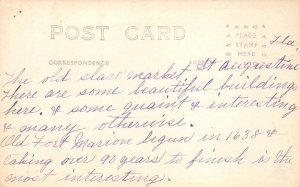 POST CARD
PLACE
STAMP
HERE
CORRESPONDENCE
Fla.
The old slave market, St Augustine
There are some beautiful buildings
here. & some quaint & interesting
& many otherwise.
Old Fort Marion begun in 1638 &
taking over 90 years to finish is the
most interesting.